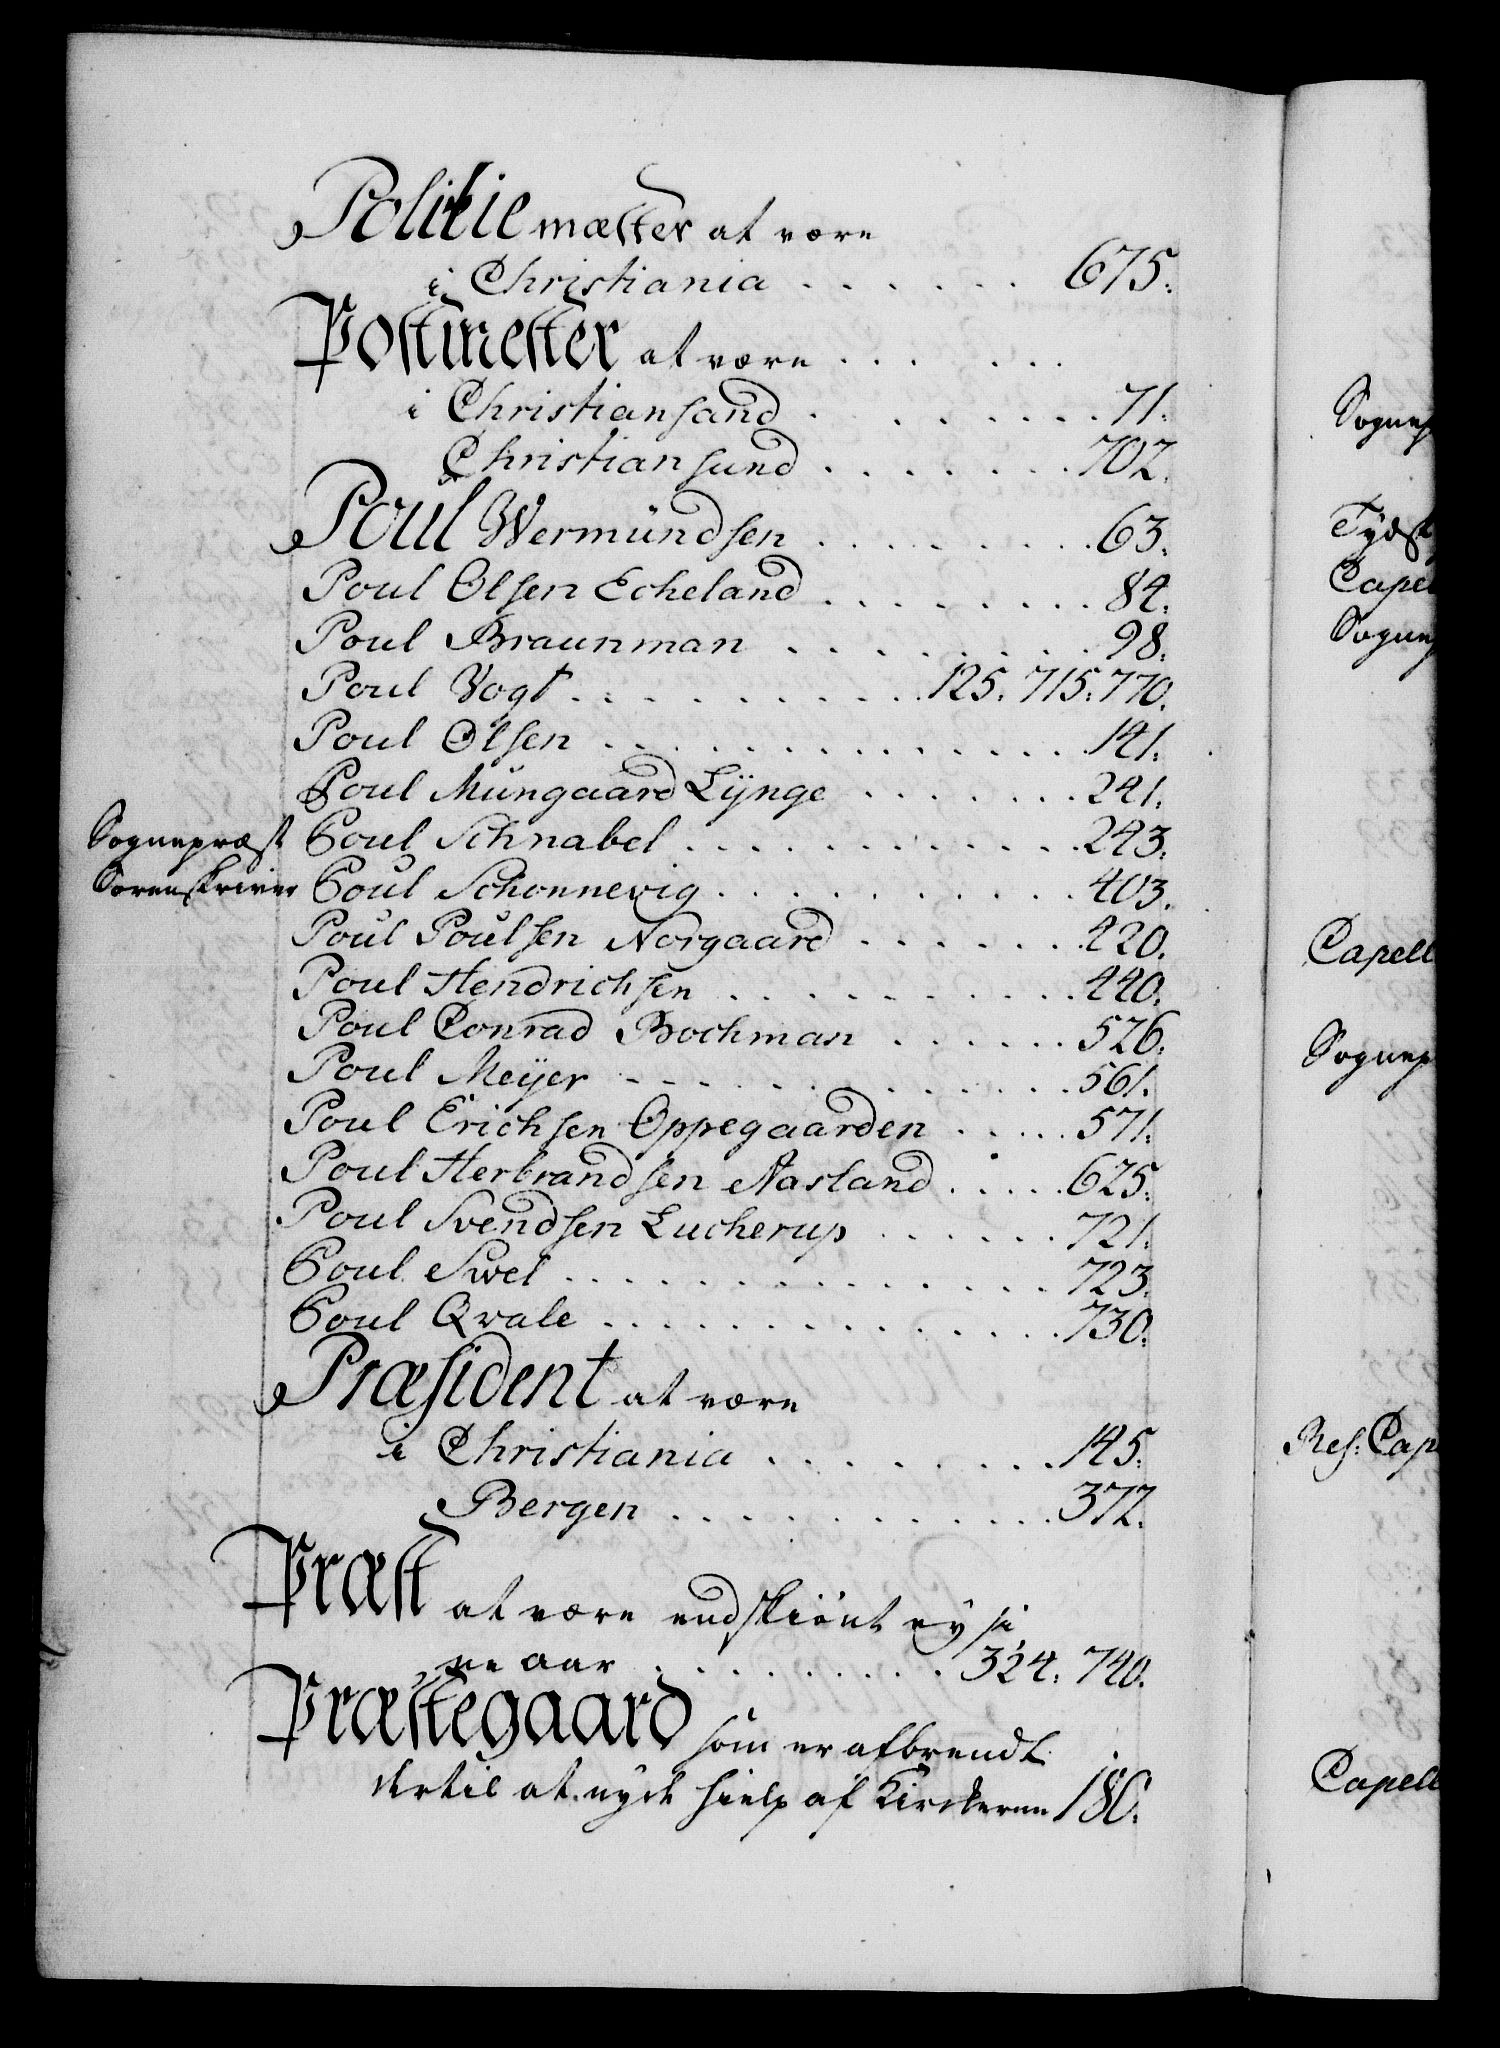 Politiemæster at være
i Christiania . . . . . . 675.
Postmester at være . . . . . .
i Christiansand . . . . . . . . 71.
Christiansund . . . . . . . 702.
Poul Wermundsen . . . . . . . . 63.
Poul Olsen Echeland . . . . . . . 84.
Poul Braunman . . . . . . . . 98.
Poul Vogt . . . . . . . . . 125. 715. 770.
Poul Olsen . . . . . . . . . . . . 141.
Poul Mungaard Lÿnge . . . . . . . 241.
Sognepræst Poul Schnabel . . . . . . . . . . . 243.
Sorenskriver Poul Schonnevig . . . . . . . . . . 403.
Poul Poulsen Norgaard . . . . . . 420.
Poul Hendrichsen . . . . . . . . . . 440.
Poul Conrad Bochman . . . . . . 526.
Poul Meÿer . . . . . . . . . . . . 561.
Poul Erichsen Oppegaarden . . . . . 571.
Poul Herbrandsen Aasland . . . . . 625.
Poul Svendsen Lucherup . . . . . . 721.
Poul Swel . . . . . . . . . . . . . 723.
Poul Qvale . . . . . . . . . . . . 730.
Præsident at være
i Christiania . . . . . . . . 145.
Bergen . . . . . . . . . . . 372.
Præst at være endskiønt eÿ si
ne aar . . . . . . . . 324. 740.
Præstegaard som er afbrendt
dertil at nyde hielp af Kirckerne 180.
Sognep
Tydsk
Capel
Sognep
Capell
Sognep
Res: Cap
Capell